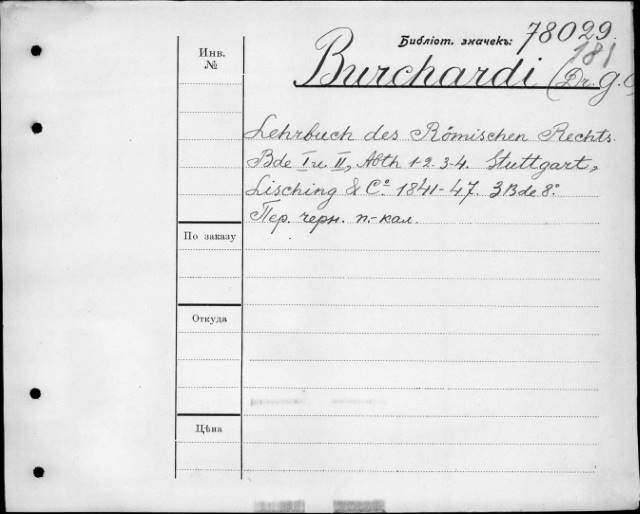 Библіот. значекъ: 78029.
181
Инв. №
Burchardi (Dr. G. C
Lehrbuch des Römischen Rechts.
Bde I u II, Abth 1+2. 3-4. Stuttgart,
Lisching & Cº 1841-47. 3 Bde 8º
Пер. черн. п.-кал.
По заказу
Откуда
Цѣна